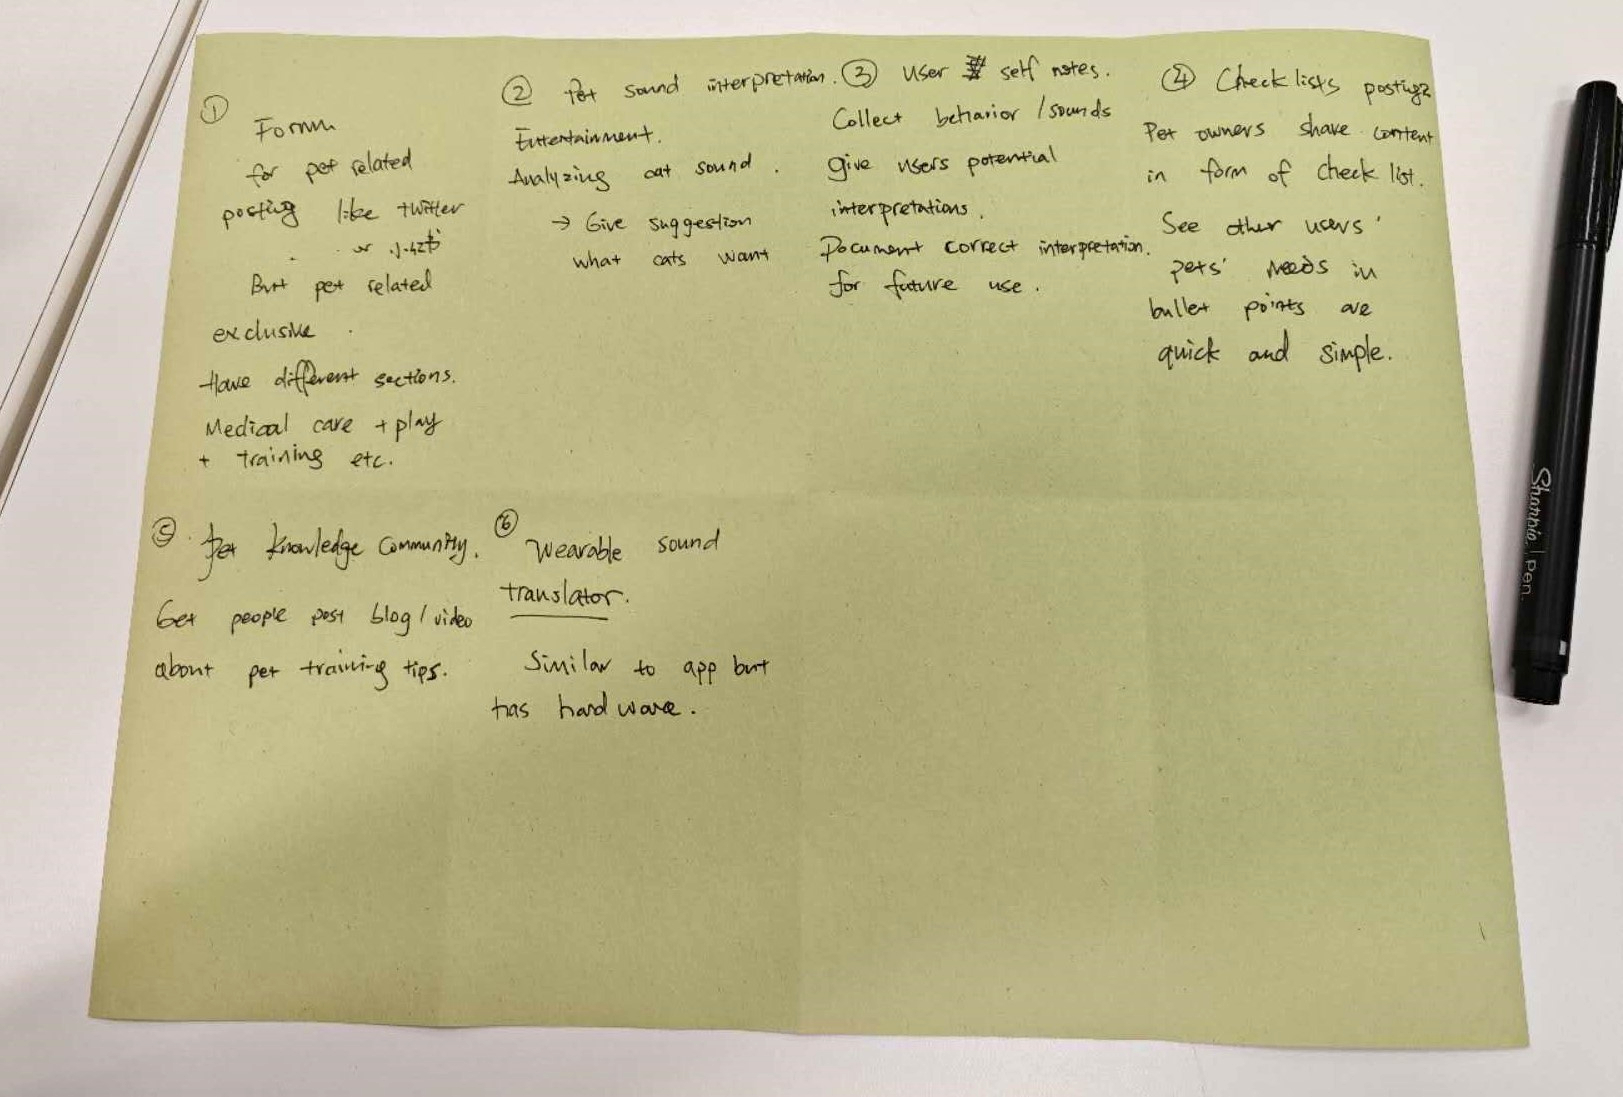 ①
Forum
for pet related
posting like twitter
or 小红书
But pet related
exclusive.
Have different sections.
Medical care + play
+ training etc.
② Pet sound interpretation.
Entertainment.
Analyzing cat sound.
→ Give suggestion
what cats want
③ User self notes.
Collect behavior / sounds
give users potential
interpretations.
Document correct interpretation.
for future use.
④ Checklists posting
Pet owners share content
in form of check list.
See other users'
pets' needs in
bullet points are
quick and simple.
⑤ Pet knowledge community.
Get people post blog / video
about pet training tips.
⑥
Wearable sound
translator.
Similar to app but
has hardware.
Sharpie | Pen.